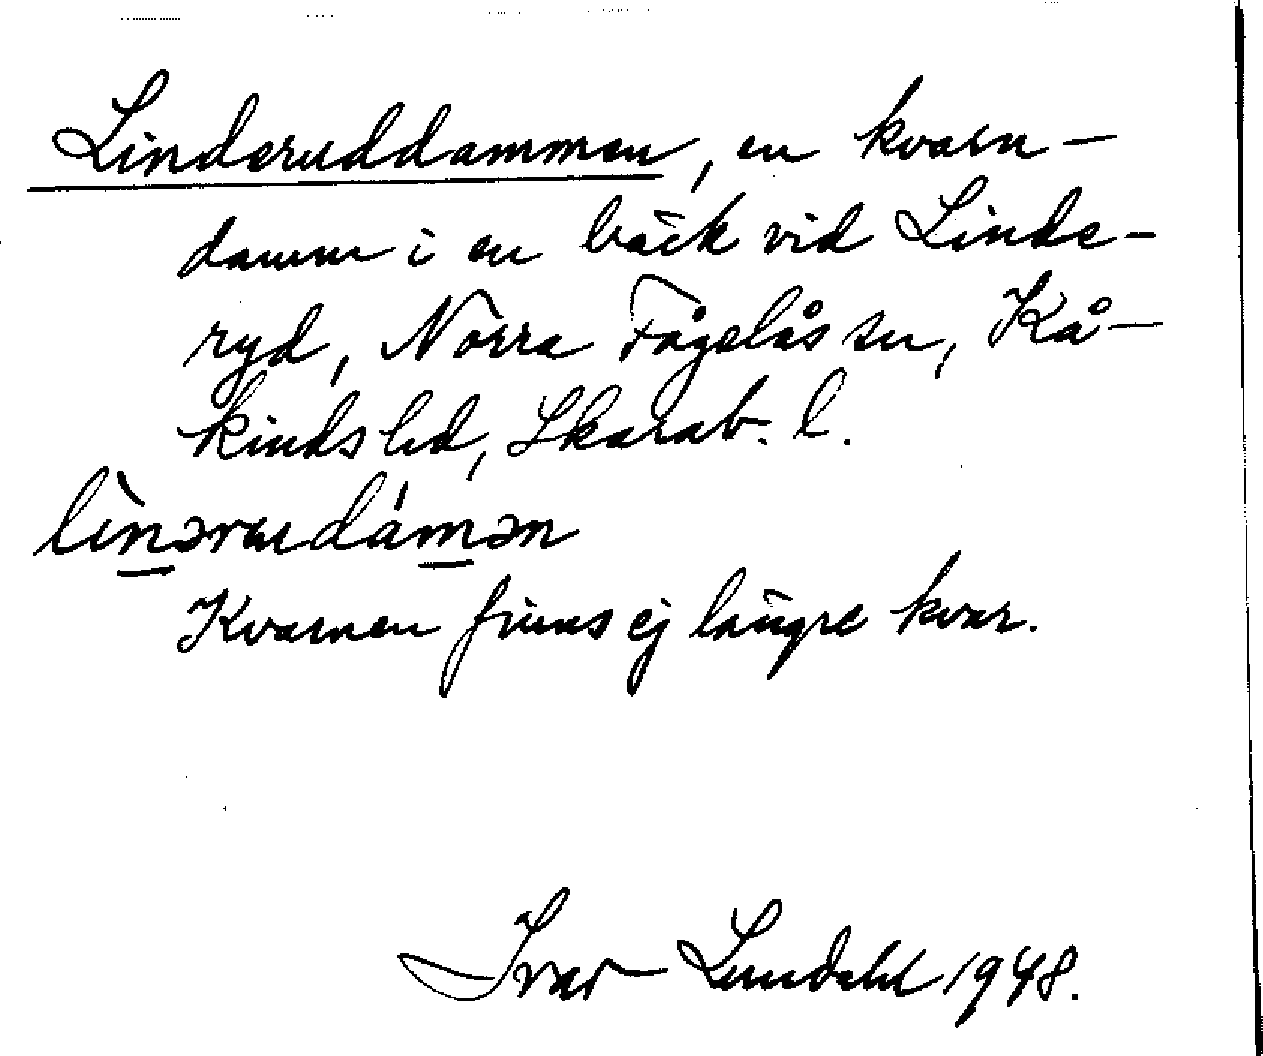 Linderuddammen, en kvarn-
damm i en bäck vid Linde-
ryd, Norra Fågelås sn, Kå-
kinds hd, Skarab. l.
lìnərudámən
Kvarnen finns ej längre kvar.
Ivar Lundahl 1948.